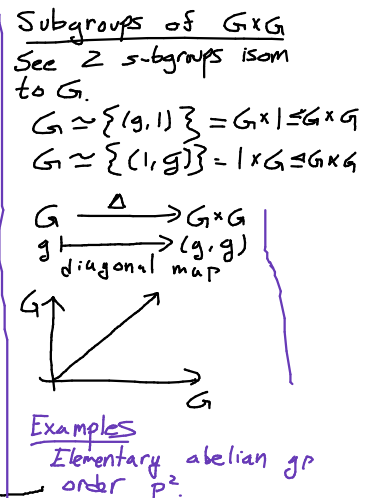 Subgroups of G×G
See 2 s-bgroups isom
to G.
G ≃ {(g,1)} = G×1 ≤ G×G
G ≃ {(1,g)} = 1×G ≤ G×G
Δ
G → G×G
g ↦ (g,g)
diagonal map
G
G
Examples
Elementary abelian gp
order p².